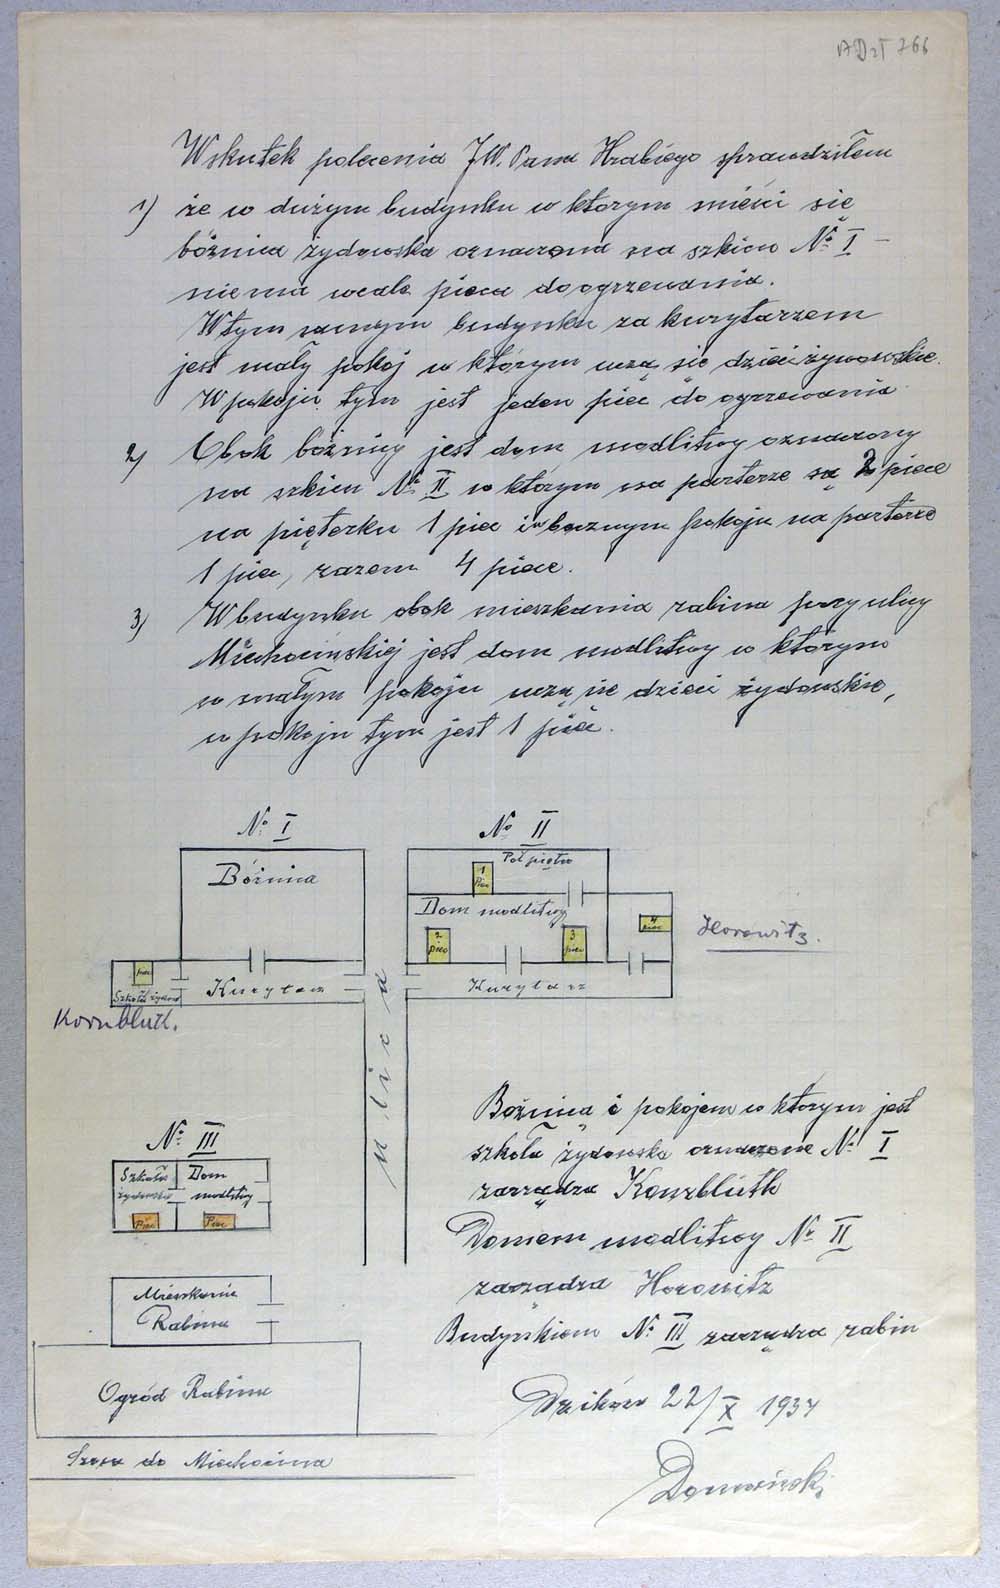 ADzT 766
Wskutek polecenia JW. Pana Hrabiego sprawdziłem
1) że w dużym budynku w którym mieści się
bóżnica żydowska oznaczona na szkicu No I –
niema wcale pieca do ogrzewania.
W tym samym budynku za kurytarzem
jest mały pokój w którym uczą się dzieci żydowskie.
W pokoju tym jest jeden piec do ogrzewania
2) Obok bóżnicy jest dom modlitwy oznaczony
na szkicu No II w którym na parterze są 2 piece
na pięterku 1 piec i w bocznym pokoju na parterze
1 piec, razem 4 piece.
3) W budynku obok mieszkania rabina przy ulicy
Miechocińskiej jest dom modlitwy w którym
w małym pokoju uczą się dzieci żydowskie,
w pokoju tym jest 1 piec.
No I
No II
Bóżnica
Pół piętro
1 Piec
Dom modlitwy
2 piec
3 piec
4 piec
Horowitz.
piec
Szkoła żydow
Kurytarz
Kurytarz
Kornbluth.
ulica
No III
Szkoła żydowska
Dom modlitwy
Piec
Piec
Mieszkanie
Rabina
Ogród Rabina
Szosa do Miechocina
Bóżnicą i pokojem w którym jest
szkoła żydowska oznaczone No I
zarządza Kornblüth
Domem modlitwy No II
zarządza Horowitz
Budynkiem No III zarządza rabin
Dzików 22/X 1937